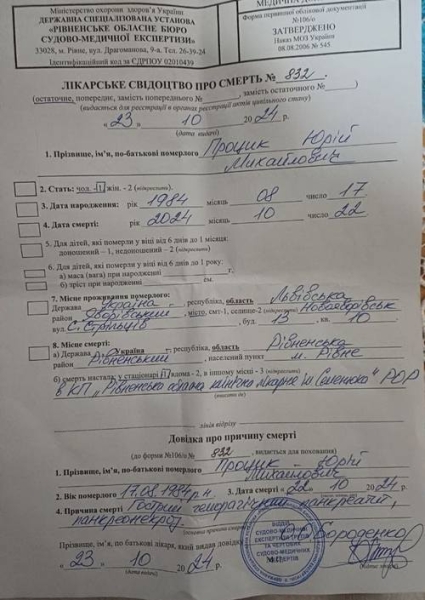 Міністерство охорони здоров'я України
ДЕРЖАВНА СПЕЦІАЛІЗОВАНА УСТАНОВА
«РІВНЕНСЬКЕ ОБЛАСНЕ БЮРО
СУДОВО-МЕДИЧНОЇ ЕКСПЕРТИЗИ»
33028, м. Рівне, вул. Драгоманова, 9-а, Тел. 26-39-24
Ідентифікаційний код за ЄДРПОУ 02010439
Форма первинної облікової документації
№106/о
ЗАТВЕРДЖЕНО
Наказ МОЗ України
08.08.2006 № 545
ЛІКАРСЬКЕ СВІДОЦТВО ПРО СМЕРТЬ № 832
(остаточне, попереднє, замість попереднього № , замість остаточного № )
(видається для реєстрації в органах реєстрації актів цивільного стану)
« 23 » 10 2024 р.
(дата видачі)
1. Прізвище, ім'я, по-батькові померлого Процик Юрій
Михайлович
2. Стать: чол. -1, жін. - 2 (підкреслити).
3. Дата народження: рік 1984 місяць 08 число 17
4. Дата смерті: рік 2024 місяць 10 число 22
5. Для дітей, які померли у віці від 6 днів до 1 місяця:
доношений – 1, недоношений – 2 (підкреслити)
6. Для дітей, які померли у віці від 6 днів до 1 року:
а) маса (вага) при народженні г.
б) зріст при народженні см.
7. Місце проживання померлого:
Держава Україна, республіка, область Львівська
район Яворівський, місто, смт-1, селище-2 Новояворівськ
вул. С. Стрільців, буд. 13 10
8. Місце смерті:
а) Держава Україна -, республіка, область Рівненська
район Рівненський, населений пункт м. Рівне
б) смерть настала: у стаціонарі -1, вдома - 2, в іншому місці - 3 (підкреслити)
в КП "Рівненська обласна клінічна лікарня ім Семенюка" РОР
(вказати де)
лінія відрізу
Довідка про причину смерті
(до форми №106/о № 832, видається для поховання)
1. Прізвище, ім'я, по-батькові померлого Процик Юрій
Михайлович
2. Вік померлого 17.08.1984 р.н. 3. Дата смерті «22» 10 2024 р.
4. Причина смерті Гострий геморагічний панкреатит,
панкреонекроз.
Прізвище, ім'я, по батькові лікаря, який видав довідку
« 23 » 10 2024 р.
(дата видачі)
ВІДДІЛ
СУДОВО-МЕДИЧНОЇ
ЕКСПЕРТИЗИ ТРУПІВ